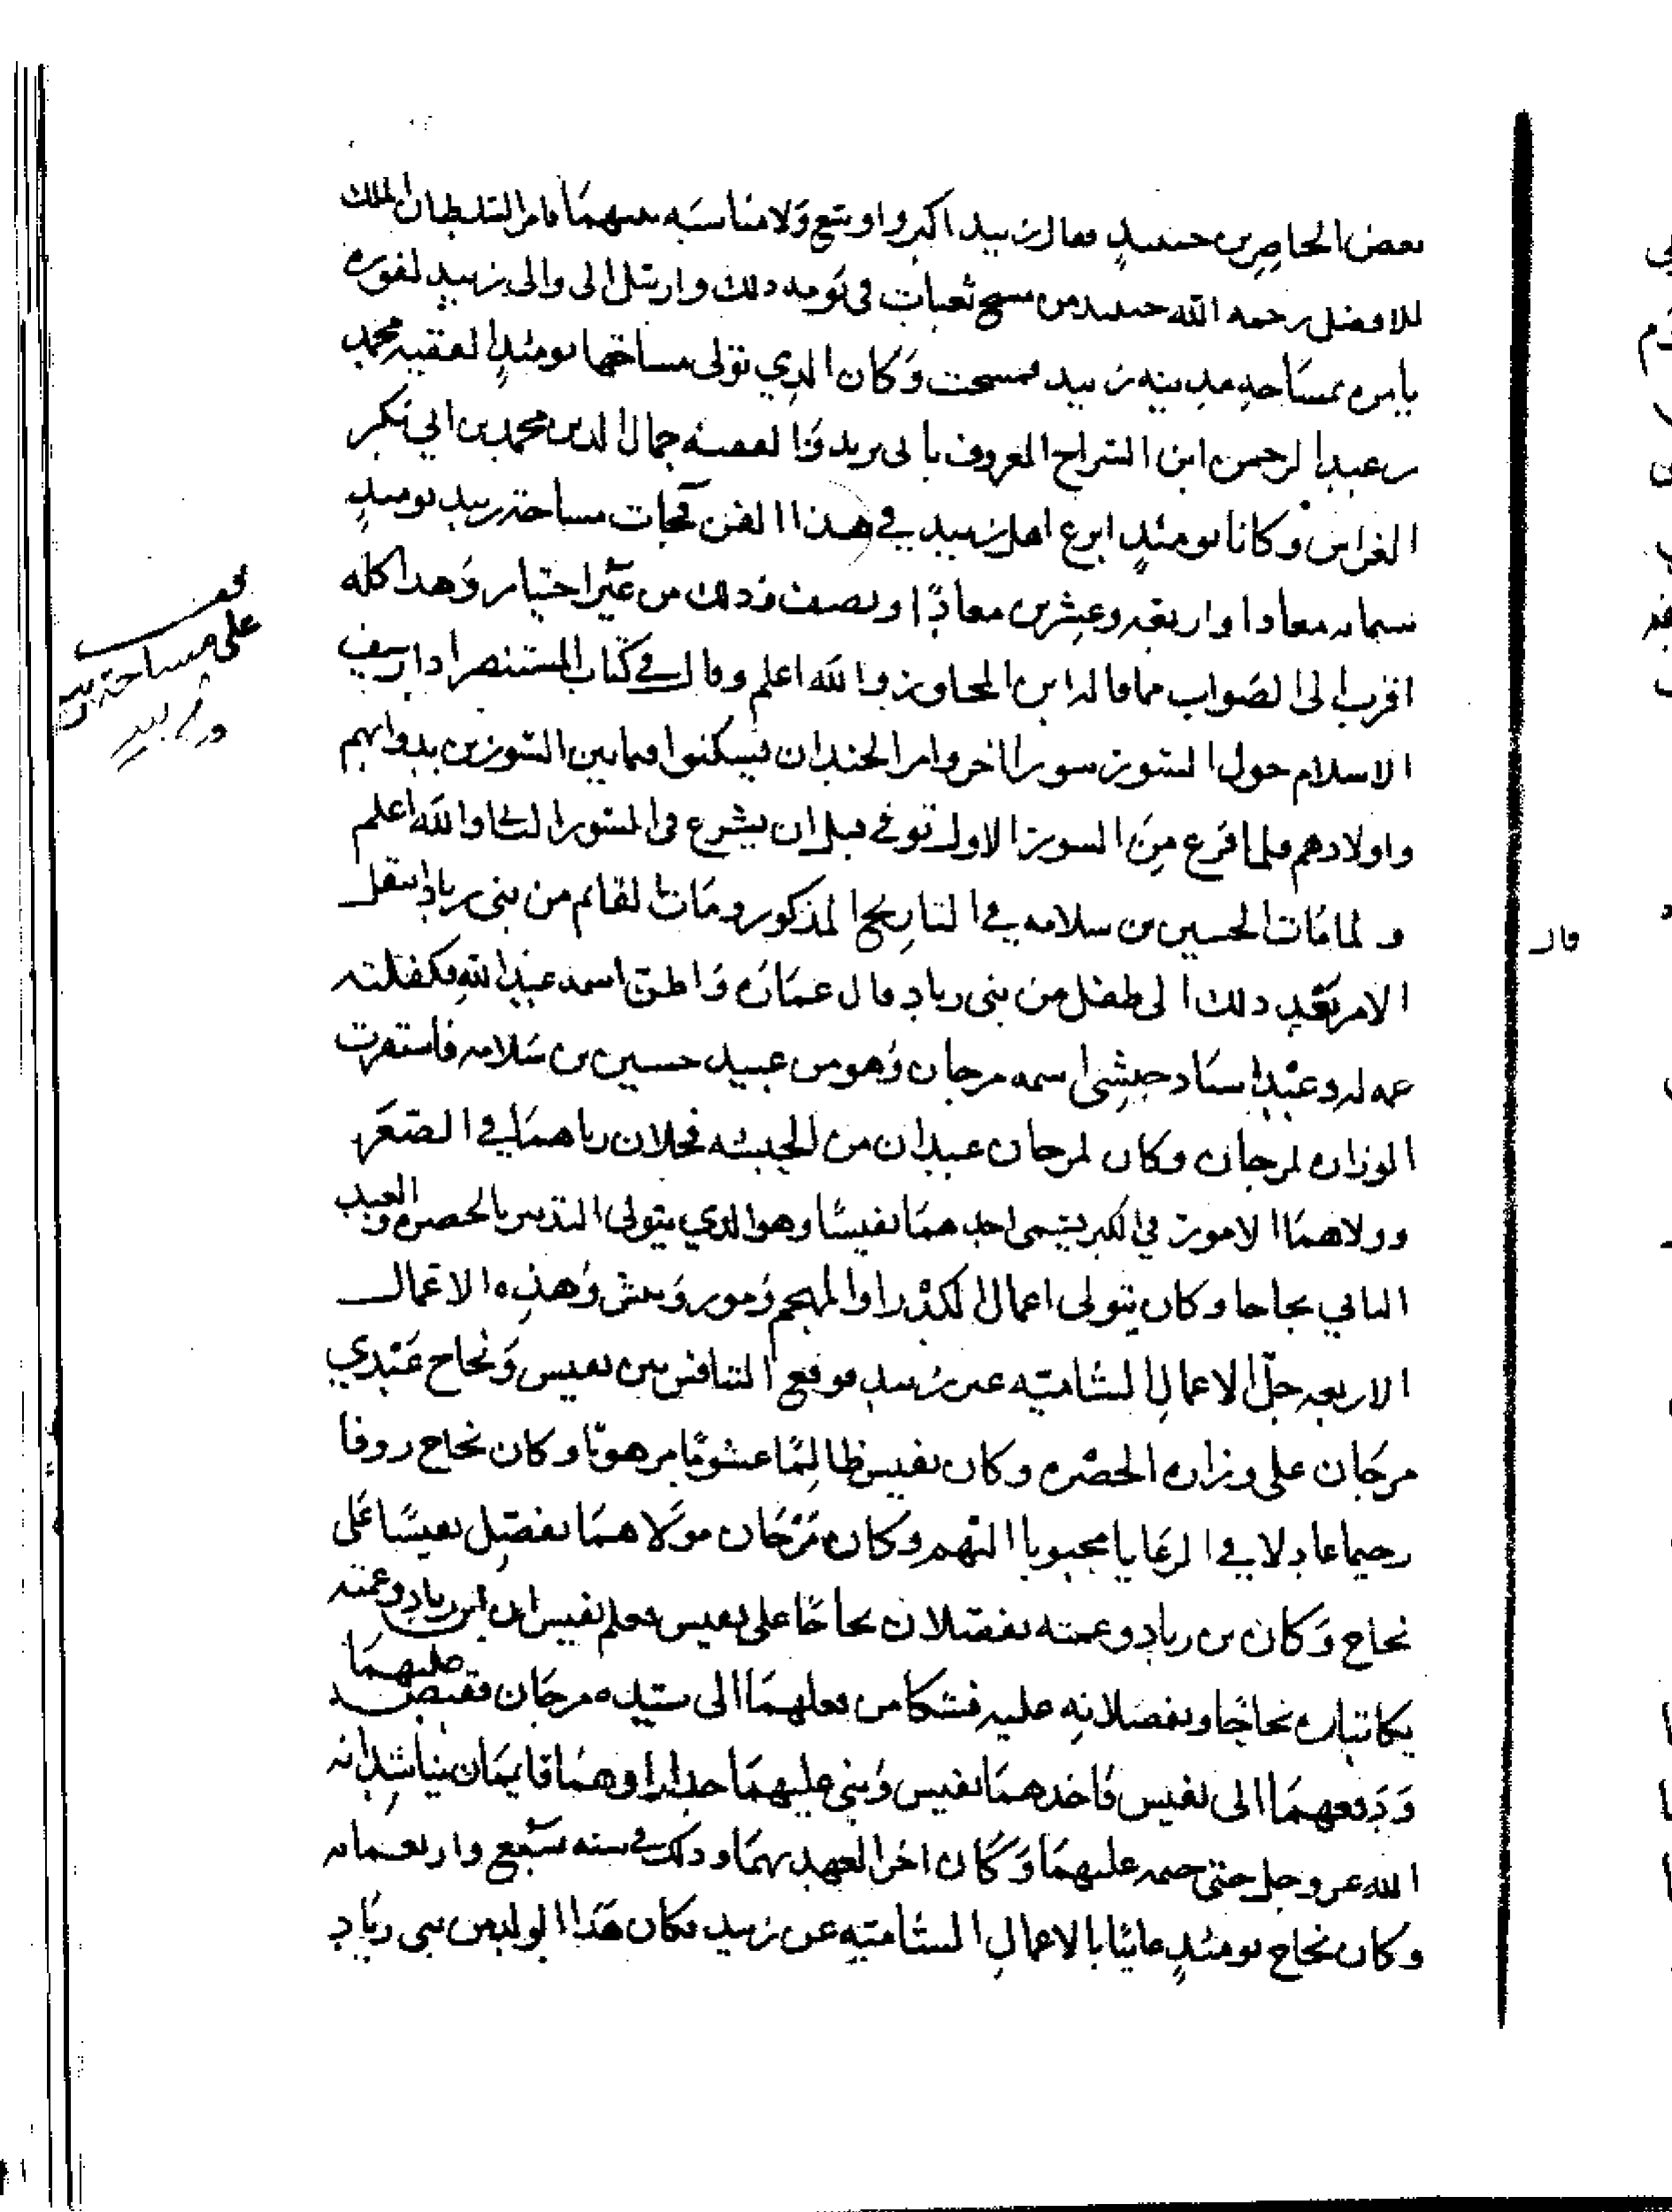 بعض الحاضرين حينئذٍ فقال زبيد اكبر واوسع ولا مناسبه بينهما فامر السلطان الملك
الافضل رحمه الله حينئذ من مسح ثعبات في يومه ذلك وارسل الى والى زبيدٍ لفوره
يأمره بمساحه مدينه زبيد فمسحت وكان الذي تولى مساحتها يومئذٍ الفقيه محمد
بن عبد الرحمن ابن السراح المعروف بابى يزيد والفقيه جمال الدين محمد بن ابي بكر
الغراس وكانا يومئذٍ ابرع اهل زبيد في هذا الفن فجات مساحة زبيد يوميذٍ
ستمايه معادا واربعه وعشرين معادًا ونصف وذلك من غير اختيار وهذا كله
اقرب الى الصواب مما قاله ابن المجاور والله اعلم وقال في كتاب المستنصر ادار سيف
الاسلام حول السور سورا اخر وامر الجند ان يسكنوا فيما بين السورين بدوابهم
واولادهم فلما فرغ من السور الاول توفي قبل ان يشرع في السور الثاني والله اعلم
ولما مات الحسين بن سلامه في التاريخ المذكور ومات القايم من بني زياد انتقل
الامر بعد ذلك الى طفل من بني زياد قال عماره واظن اسمه عبد الله فكفلته
عمه له وعبد استاد حبشي اسمه مرجان وهو من عبيد حسين بن سلامه فاستقرت
الوزاره لمرجان وكان لمرجان عبدان من الحبشه فحلان رباهما في الصغر
وولاهما الامور في الكبر يسمى احدهما نفيسًا وهو الذي يتولى التدبير بالحضره والعبد
الثاني نجاحا وكان يتولى اعمال الكدرا والمهجم ومور وبيش وهذه الاعمال
الاربعه جلّ الاعمال الشاميه عن زبيد فوقع التنافس بين نفيس ونجاح عبدي
مرجان على وزاره الحضره وكان نفيس ظالمًا غشومًا مرهوبًا وكان نجاح روفا
رحيما عادلا في الرعايا محبوبا اليهم وكان مرجان مولاهما يفضل نفيسًا على
نجاح وكان بن زياد وعمته يفضلان نجاحًا على نفيس فعلم نفيس ان ابن زياد وعمته
يكاتبان نجاحًا ويفضلانه عليه فشكا من فعلهما الى سيده مرجان فقبض عليهما
ودفعهما الى نفيس فاخذهما نفيس وبنى عليهما جدارا وهما قايمان يناشدانه
الله عز وجل حتى ختمه عليهما وكان اخر العهد بهما وذلك في سنه سبع واربعمايه
وكان نجاح يومئذٍ غائبًا بالاعمال الشاميه عن زبيد فكان هذا الولد من بني زياد
قف
على مساحة
زبيد
قال